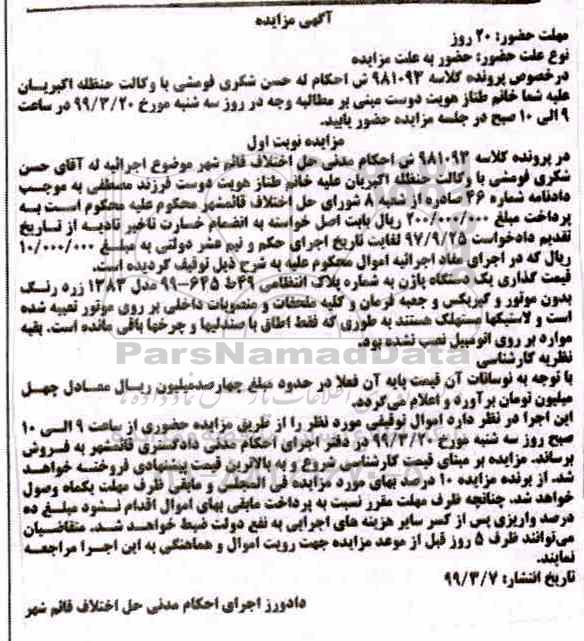 آگهی مزایده
مهلت حضور: ۲۰ روز
نوع علت حضور: حضور به علت مزایده
درخصوص پرونده کلاسه ۹۸۱۰۹۳ ش احکام له حسن شکری فومشی با وکالت حنظله اکبریان
علیه شما خانم طناز هویت دوست مبنی بر مطالبه وجه در روز سه شنبه مورخ ۹۹/۳/۲۰ در ساعت
۹ الی ۱۰ صبح در جلسه مزایده حضور یابید.
مزایده نوبت اول
در پرونده کلاسه ۹۸۱۰۹۳ ش احکام مدنی حل اختلاف قائم شهر موضوع اجرائیه له آقای حسن
شکری فومشی با وکالت حنظله اکبریان علیه خانم طناز هویت دوست فرزند مصطفی به موجب
دادنامه شماره ۴۶ صادره از شعبه ۸ شورای حل اختلاف قائمشهر محکوم علیه محکوم است به
پرداخت مبلغ ۲۰۰/۰۰۰/۰۰۰ ریال بابت اصل خواسته به انضمام خسارت تاخیر تادیه از تاریخ
تقدیم دادخواست ۹۷/۹/۲۵ لغایت تاریخ اجرای حکم و نیم عشر دولتی به مبلغ ۱۰/۰۰۰/۰۰۰
ریال که در اجرای مفاد اجرائیه اموال محکوم علیه به شرح ذیل توقیف گردیده است.
قیمت گذاری یک دستگاه پاژن به شماره پلاک انتظامی ۴۹ط ۶۴۵-۹۹ مدل ۱۳۸۳ زرد رنگ
بدون موتور و گیربکس و جعبه فرمان و کلیه ملحقات و منصوبات داخلی بر روی موتور تعبیه شده
است و لاستیکها مستهلک هستند به طوری که فقط اطاق با صندلیها و چرخها باقی مانده است. بقیه
موارد بر روی اتومبیل نصب نشده بود.
ParsNamadData
نظریه کارشناسی
با توجه به نوسانات آن قیمت پایه آن فعلا در حدود مبلغ چهارصدمیلیون ریال معادل چهل
میلیون تومان برآورد و اعلام می‌گردد.
این اجرا در نظر دارد اموال توقیفی مورد نظر را از طریق مزایده حضوری از ساعت ۹ الی ۱۰
صبح روز سه شنبه مورخ ۹۹/۳/۲۰ در دفتر اجرای احکام مدنی دادگستری قائمشهر به فروش
برساند. مزایده بر مبنای قیمت کارشناسی شروع و به بالاترین قیمت پیشنهادی فروخته خواهد
شد. از برنده مزایده ۱۰ درصد بهای مورد مزایده فی المجلس و مابقی ظرف مهلت یکماه وصول
خواهد شد. چنانچه ظرف مهلت مقرر نسبت به پرداخت مابقی بهای اموال اقدام نشود مبلغ ده
درصد واریزی پس از کسر سایر هزینه های اجرایی به نفع دولت ضبط خواهد شد. متقاضیان
می‌توانند ظرف ۵ روز قبل از موعد مزایده جهت رویت اموال و هماهنگی به این اجرا مراجعه
نمایند.
تاریخ انتشار: ۹۹/۳/۷
دادورز اجرای احکام مدنی حل اختلاف قائم شهر